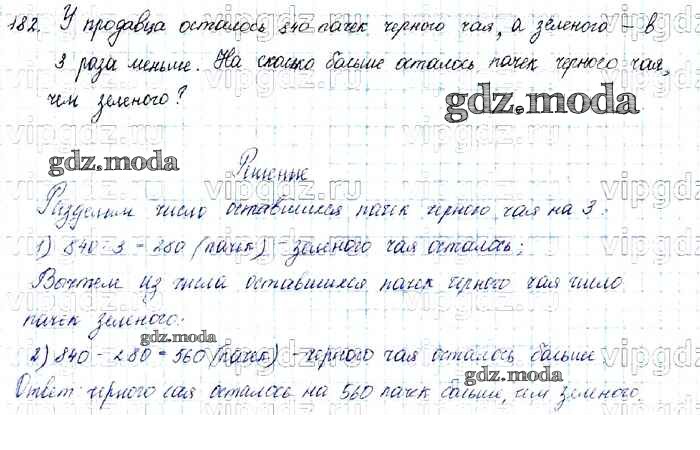 182. У продавца осталось 840 пачек черного чая, а зеленого – в
3 раза меньше. На сколько больше осталось пачек черного чая,
чем зеленого?
gdz.moda
gdz.moda
Решение
Разделим число оставшихся пачек черного чая на 3:
1) 840 : 3 = 280 (пачек) – зеленого чая осталось;
Вычтем из числа оставшихся пачек черного чая число
пачек зеленого:
gdz.moda
2) 840 – 280 = 560 (пачек) – черного чая осталось больше
gdz.moda
Ответ: черного чая осталось на 560 пачек больше, чем зеленого.